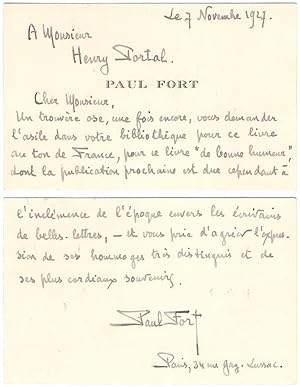 Le 7 Novembre 1927.
A Monsieur
Henry Portal.
PAUL FORT
Cher Monsieur,
Un trouvère ose, une fois encore, vous demander
l'asile dans votre bibliothèque pour ce livre
au ton de France, pour ce livre "de bonne humeur",
dont la publication prochaine est due cependant à
l'inclémence de l'époque envers les écrivains
de belles-lettres, — et vous prie d'agréer l'expres-
sion de ses hommages très distingués et de
ses plus cordiaux souvenirs.
Paul Fort
Paris, 34 rue Gay-Lussac.